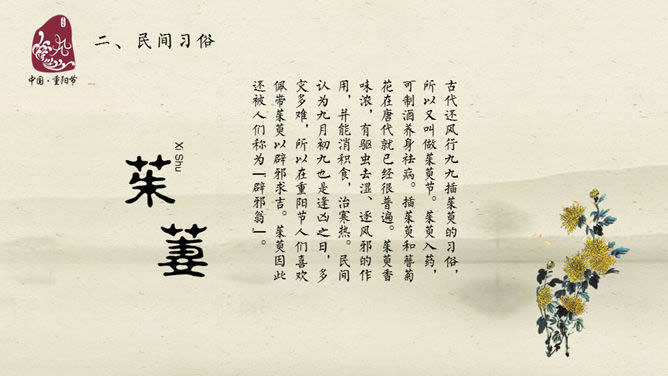 中国·重阳节
二、民间习俗
Xi Shu
茱萸
古代还风行九九插茱萸的习俗，
所以又叫做茱萸节。茱萸入药，
可制酒养身祛病。插茱萸和簪菊
花在唐代就已经很普遍。茱萸香
味浓，有驱虫去湿、逐风邪的作
用，并能消积食，治寒热。民间
认为九月初九也是逢凶之日，多
灾多难，所以在重阳节人们喜欢
佩带茱萸以辟邪求吉。茱萸因此
还被人们称为“辟邪翁”。